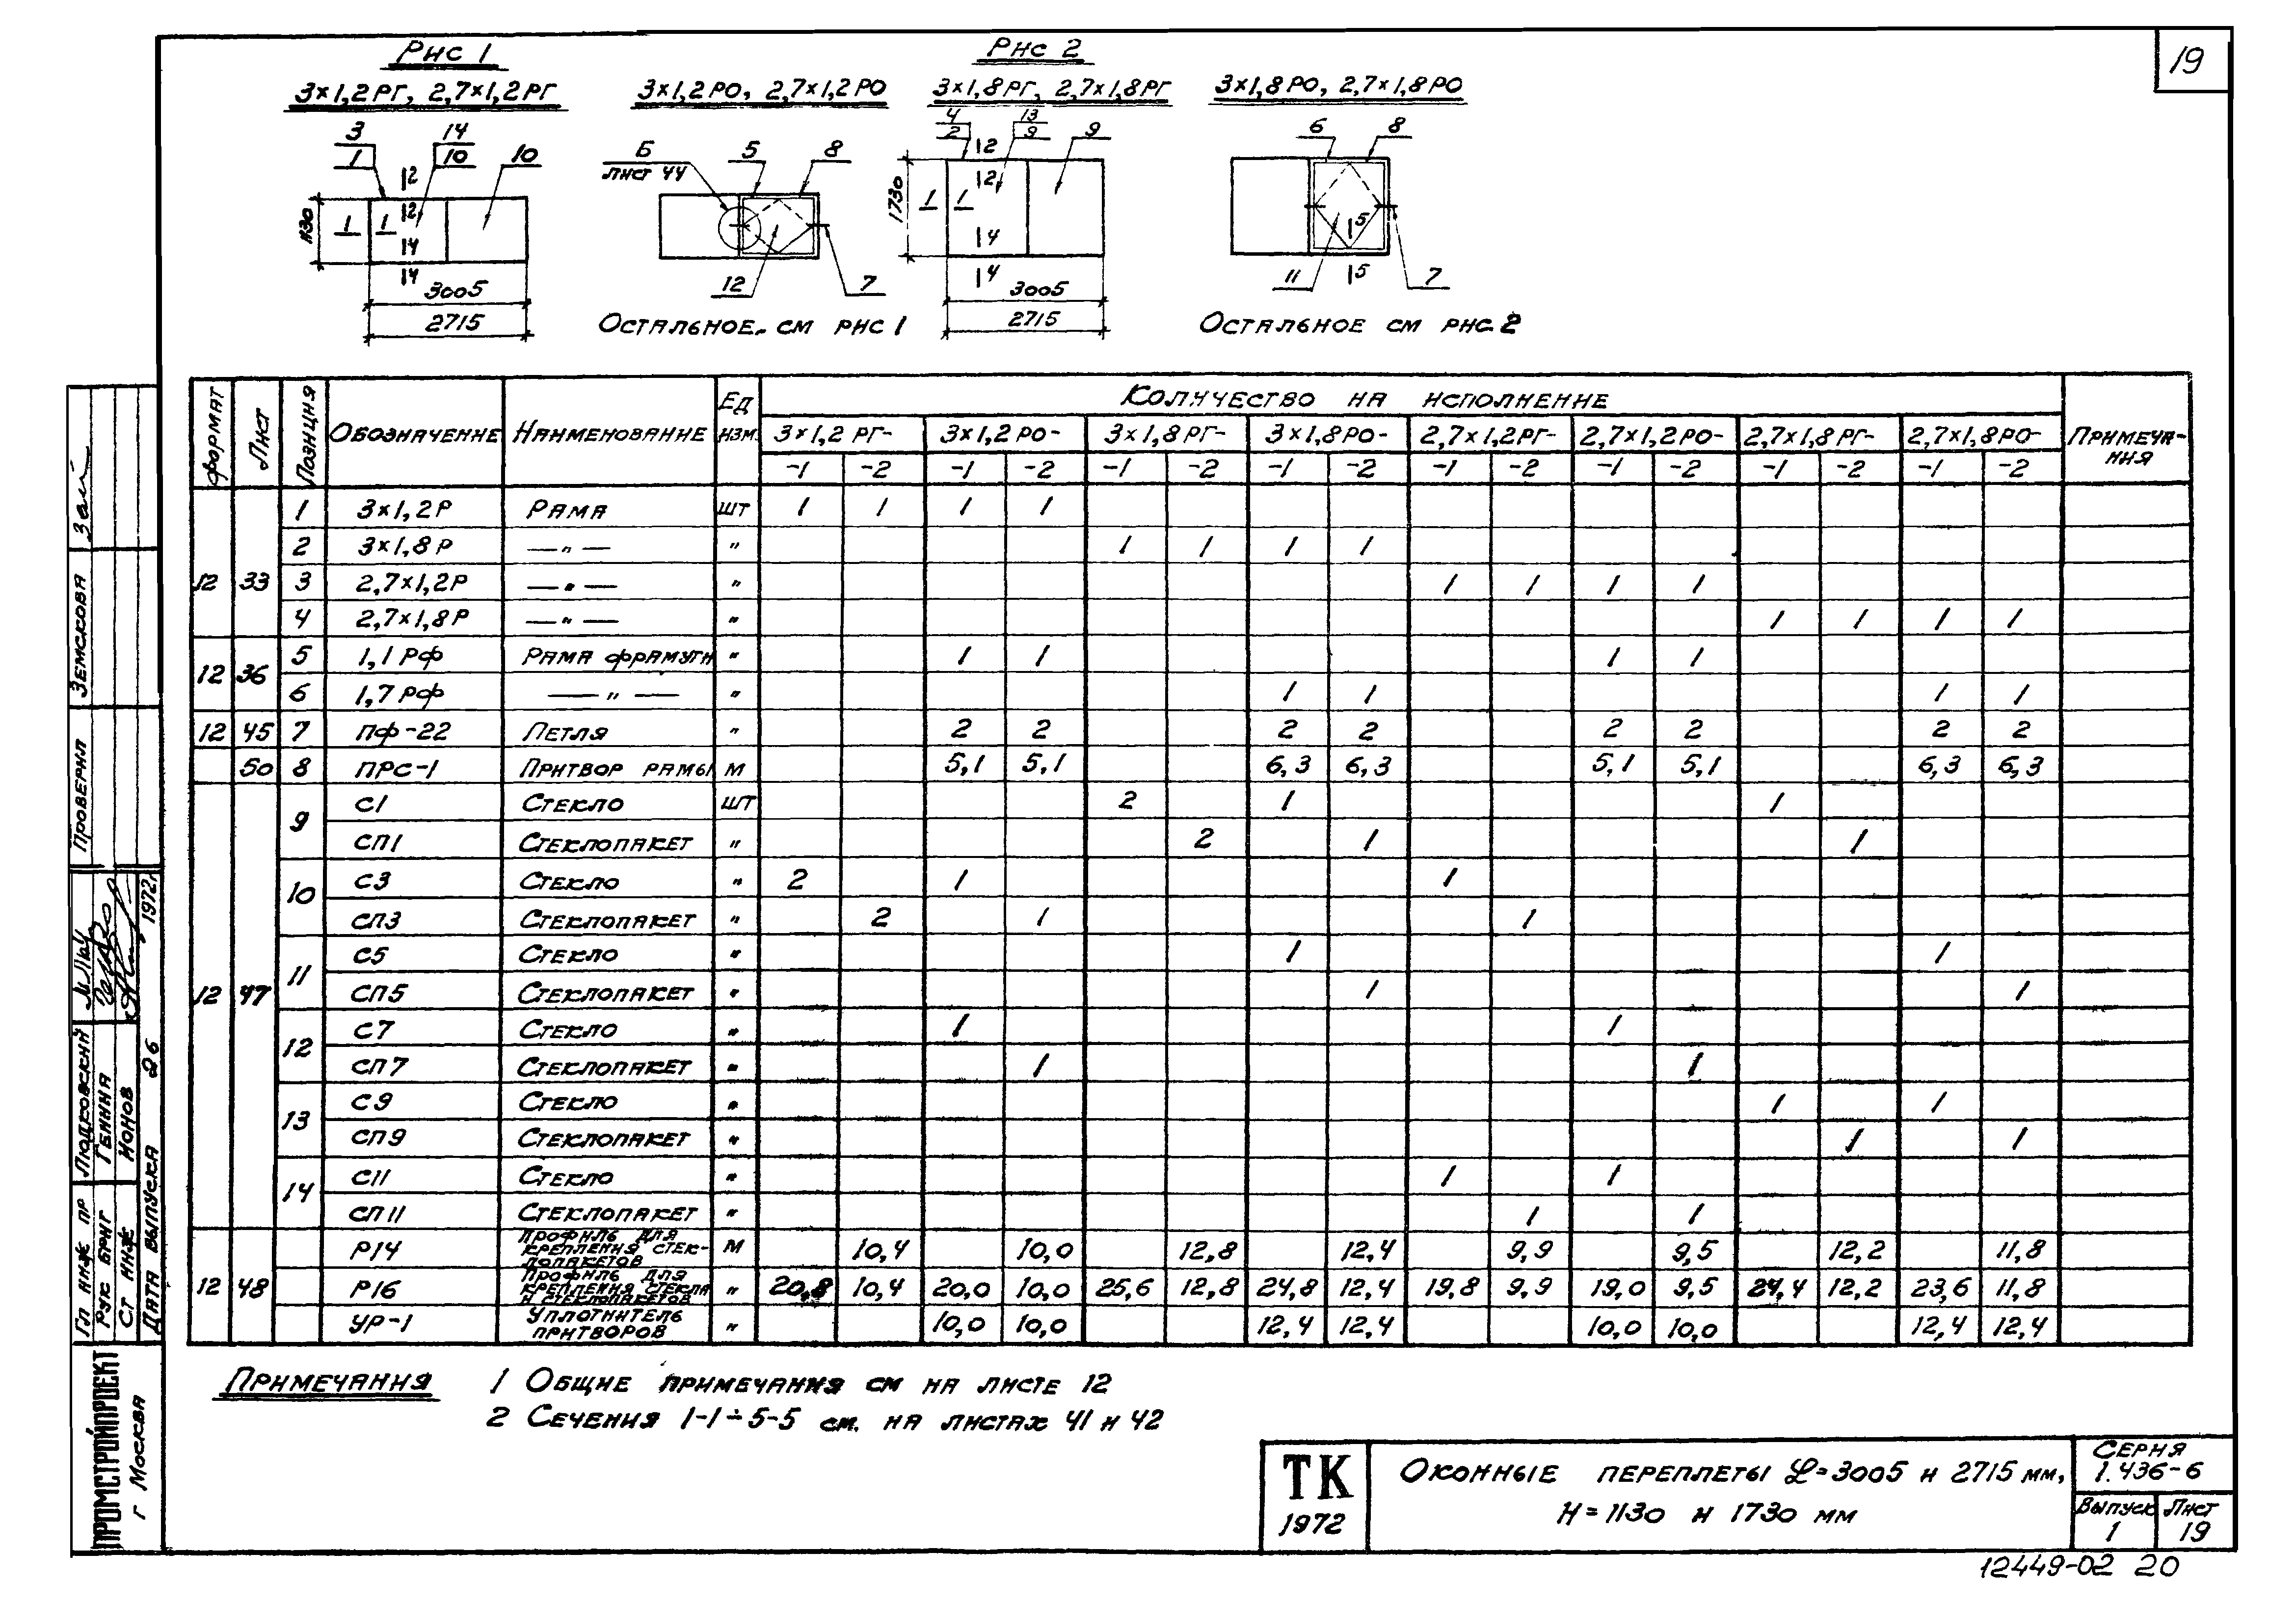 19
Рис 1
3×1,2РГ, 2,7×1,2РГ
3×1,2РО, 2,7×1,2РО
Рис 2
3×1,8РГ, 2,7×1,8РГ
3×1,8РО, 2,7×1,8РО
3
1
14
10
10
12
12
1 1
14
14
1130
3005
2715
Б
лист 44
5
8
12
7
Остальное см рис 1
4
2
13
9
9
12
12
1 1
14
14
1730
3005
2715
6
8
15
15
11
7
Остальное см рис. 2
Формат Лист Позиция Обозначение Наименование Ед изм. Количество на исполнение Примечания
3×1,2 РГ- 3×1,2 РО- 3×1,8РГ- 3×1,8РО- 2,7×1,2РГ- 2,7×1,2РО- 2,7×1,8РГ- 2,7×1,8РО-
-1 -2 -1 -2 -1 -2 -1 -2 -1 -2 -1 -2 -1 -2 -1 -2
12 33
1 3×1,2Р Рама шт 1 1 1 1
2 3×1,8Р —"— " 1 1 1 1
3 2,7×1,2Р —"— " 1 1 1 1
4 2,7×1,8Р —"— " 1 1 1 1
12 36
5 1,1РФ Рама фрамуги " 1 1 1 1
6 1,7РФ —"— " 1 1 1 1
12 45 7 ПФ-22 Петля " 2 2 2 2 2 2 2 2
50 8 ПРС-1 Притвор рамы М 5,1 5,1 6,3 6,3 5,1 5,1 6,3 6,3
12 47
9 С1 Стекло шт 2 1 1
СП1 Стеклопакет " 2 1 1
10 С3 Стекло " 2 1 1
СП3 Стеклопакет " 2 1 1
11 С5 Стекло " 1 1
СП5 Стеклопакет " 1 1
12 С7 Стекло " 1 1
СП7 Стеклопакет " 1 1
13 С9 Стекло " 1 1
СП9 Стеклопакет " 1 1
14 С11 Стекло " 1 1
СП11 Стеклопакет " 1 1
12 48
Р14 Профиль для крепления стеклопакетов М 10,4 10,0 12,8 12,4 9,9 9,5 12,2 11,8
Р16 Профиль для крепления стекла и стеклопакетов " 20,8 10,4 20,0 10,0 25,6 12,8 24,8 12,4 19,8 9,9 19,0 9,5 24,4 12,2 23,6 11,8
УР-1 Уплотнитель притворов " 10,0 10,0 12,4 12,4 10,0 10,0 12,4 12,4
Примечания 1 Общие примечания см на листе 12
2 Сечения 1-1÷5-5 см. на листах 41 и 42
ТК
1972
Оконные переплеты L=3005 и 2715 мм,
Н=1130 и 1730 мм
Серия
1.436-6
Выпуск Лист
1 19
12449-02 20
Проверил Земскова
Гл инж пр Людковский
Рук бриг Генина
Ст инж Ионов
Дата выпуска 1972г
ПРОМСТРОЙПРОЕКТ
г Москва